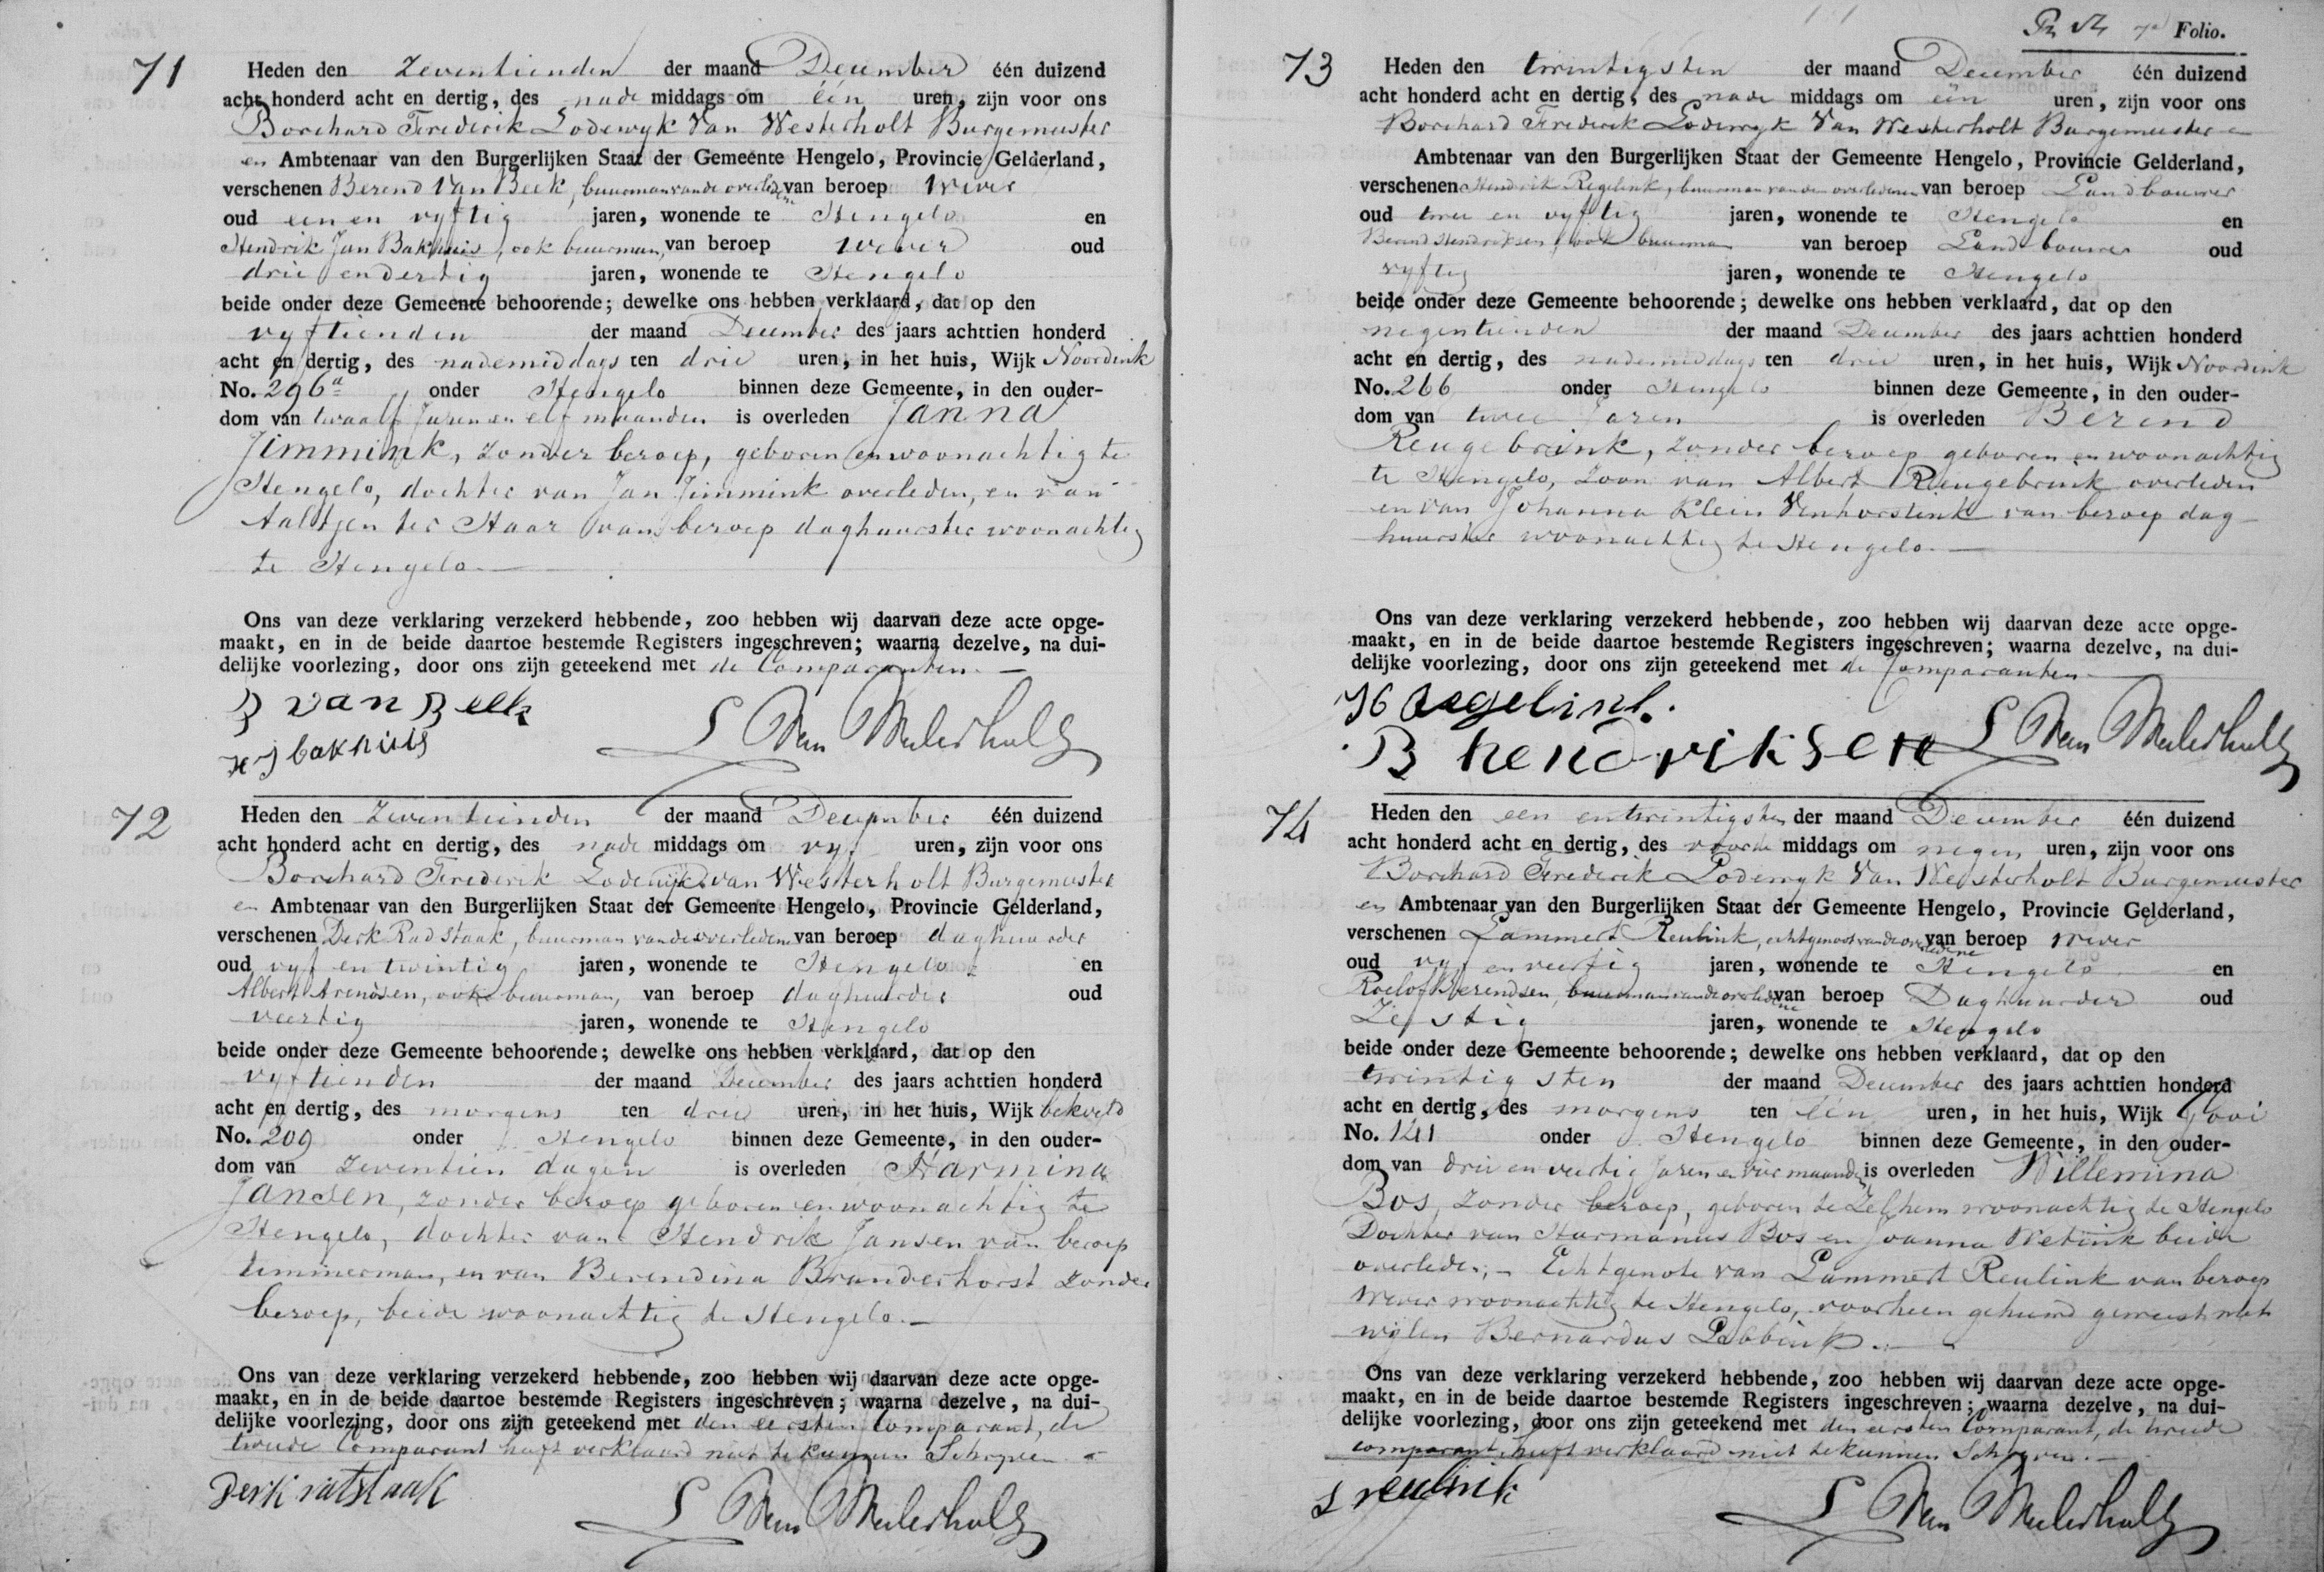 71
Heden den Zeventienden der maand December één duizend
acht honderd acht en dertig, des nade middags om één uren, zijn voor ons
Borchard Frederik Lodewyk Van Westerholt Burgemeester
en Ambtenaar van den Burgerlijken Staat der Gemeente Hengelo, Provincie Gelderland,
verschenen Berend Van Beek, buurman van de overledene van beroep wever
oud een en vyftig jaren, wonende te Hengelo en
Hendrik Jan Bakhuis, ook buurman, van beroep wever oud
drie en dertig jaren, wonende te Hengelo
beide onder deze Gemeente behoorende; dewelke ons hebben verklaard, dat op den
vyftienden der maand December des jaars achttien honderd
acht en dertig, des nademiddags ten drie uren, in het huis, Wijk Noordink
No. 296a onder Hengelo binnen deze Gemeente, in den ouder-
dom van twaalf Jaren en elf maanden is overleden Janna
Jimmink, zonder beroep, geboren en woonachtig te
Hengelo, dochter van Jan Jimmink overleden, en van
Aaltjen ter Haar van beroep daghuurster woonachtig
te Hengelo.
Ons van deze verklaring verzekerd hebbende, zoo hebben wij daarvan deze acte opge-
maakt, en in de beide daartoe bestemde Registers ingeschreven; waarna dezelve, na dui-
delijke voorlezing, door ons zijn geteekend met de Comparanten.
B van Beek
HJ bakhuis
L Van Westerholt
72
Heden den Zeventienden der maand December één duizend
acht honderd acht en dertig, des nade middags om vyf uren, zijn voor ons
Borchard Frederik Lodewijk van Westerholt Burgemeester
en Ambtenaar van den Burgerlijken Staat der Gemeente Hengelo, Provincie Gelderland,
verschenen Derk Radstaak, buurman van de overledene van beroep daghuurder
oud vyf en twintig jaren, wonende te Hengelo en
Albert Arendsen, ook buurman, van beroep daghuurder oud
veertig jaren, wonende te Hengelo
beide onder deze Gemeente behoorende; dewelke ons hebben verklaard, dat op den
vyftienden der maand December des jaars achttien honderd
acht en dertig, des morgens ten drie uren, in het huis, Wijk bekveld
No. 209 onder Hengelo binnen deze Gemeente, in den ouder-
dom van zeventien dagen is overleden Harmina
Jansen, zonder beroep geboren en woonachtig te
Hengelo, dochter van Hendrik Jansen van beroep
timmerman, en van Berendina Branderhorst zonder
beroep, beide woonachtig te Hengelo.
Ons van deze verklaring verzekerd hebbende, zoo hebben wij daarvan deze acte opge-
maakt, en in de beide daartoe bestemde Registers ingeschreven; waarna dezelve, na dui-
delijke voorlezing, door ons zijn geteekend met den eersten Comparant, de
tweede Comparant heeft verklaard niet te kunnen Schryven.
Derk ratstaak
L Van Westerholt
Folio.
73
Heden den twintigsten der maand December één duizend
acht honderd acht en dertig, des nade middags om één uren, zijn voor ons
Borchard Frederik Lodewyk Van Westerholt Burgemeester en
Ambtenaar van den Burgerlijken Staat der Gemeente Hengelo, Provincie Gelderland,
verschenen Hendrik Regelink, buurman van den overledenen van beroep Landbouwer
oud twee en vyftig jaren, wonende te Hengelo en
Berend Hendriksen, ook buurman van beroep Landbouwer oud
vyftig jaren, wonende te Hengelo
beide onder deze Gemeente behoorende; dewelke ons hebben verklaard, dat op den
negentienden der maand December des jaars achttien honderd
acht en dertig, des nademiddags ten drie uren, in het huis, Wijk Noordink
No. 266 onder Hengelo binnen deze Gemeente, in den ouder-
dom van twee Jaren is overleden Berend
Reugebrink, zonder beroep geboren en woonachtig
te Hengelo, zoon van Albert Reugebrink overleden
en van Johanna Klein Venhorstink van beroep dag-
huurster woonachtig te Hengelo.
Ons van deze verklaring verzekerd hebbende, zoo hebben wij daarvan deze acte opge-
maakt, en in de beide daartoe bestemde Registers ingeschreven; waarna dezelve, na dui-
delijke voorlezing, door ons zijn geteekend met de Comparanten.
H Regelink.
B hendriksen
L Van Westerholt
74
Heden den een en twintigsten der maand December één duizend
acht honderd acht en dertig, des voorde middags om negen uren, zijn voor ons
Borchard Frederik Lodewyk Van Westerholt Burgemeester
en Ambtenaar van den Burgerlijken Staat der Gemeente Hengelo, Provincie Gelderland,
verschenen Lammert Reulink, echtgenoot van de overledene van beroep wever
oud vyf en veertig jaren, wonende te Hengelo en
Roelof Berendsen, buurman van de overledene van beroep Daghuurder oud
Zestig jaren, wonende te Hengelo
beide onder deze Gemeente behoorende; dewelke ons hebben verklaard, dat op den
twintigsten der maand December des jaars achttien honderd
acht en dertig, des morgens ten één uren, in het huis, Wijk Gooi
No. 141 onder Hengelo binnen deze Gemeente, in den ouder-
dom van drie en veertig Jaren en vier maanden is overleden Willemina
Bos, zonder beroep, geboren te Zelhem woonachtig te Hengelo
Dochter van Harmanus Bos en Joanna Wetink beide
overleden, Echtgenote van Lammert Reulink van beroep
wever woonachtig te Hengelo, voorheen gehuwd geweest met
wylen Bernardus Lobbink.
Ons van deze verklaring verzekerd hebbende, zoo hebben wij daarvan deze acte opge-
maakt, en in de beide daartoe bestemde Registers ingeschreven; waarna dezelve, na dui-
delijke voorlezing, door ons zijn geteekend met den eersten Comparant, de tweede
comparant heeft verklaard niet te kunnen Schryven.
L reulink
L Van Westerholt